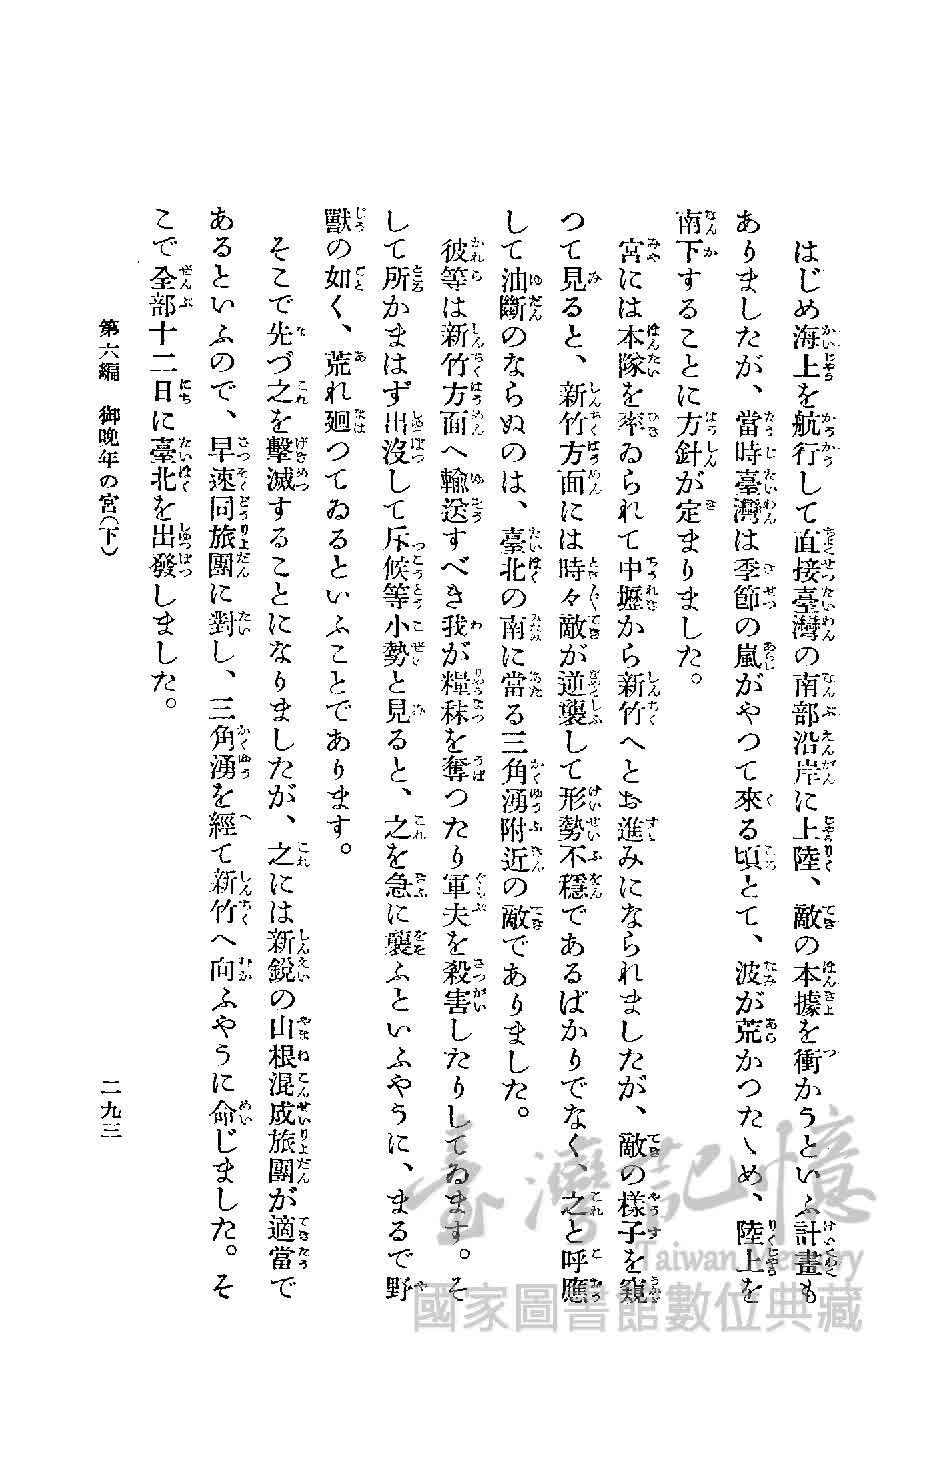 はじめ海上を航行して直接臺灣の南部沿岸に上陸、敵の本據を衝かうといふ計畫も
ありましたが、當時臺灣は季節の嵐がやつて來る頃とて、波が荒かつたゝめ、陸上を
南下することに方針が定まりました。
宮には本隊を率ゐられて中壢から新竹へとお進みになられましたが、敵の樣子を窺
つて見ると、新竹方面には時々敵が逆襲して形勢不穩であるばかりでなく、之と呼應
して油斷のならぬのは、臺北の南に當る三角湧附近の敵でありました。
彼等は新竹方面へ輸送すべき我が糧秣を奪つたり軍夫を殺害したりしてゐます。そ
して所かまはず出沒して斥候等小勢と見ると、之を急に襲ふといふやうに、まるで野
獸の如く、荒れ廻つてゐるといふことであります。
そこで先づ之を擊滅することになりましたが、之には新銳の山根混成旅團が適當で
あるといふので、早速同旅團に對し、三角湧を經て新竹へ向ふやうに命じました。そ
こで全部十二日に臺北を出發しました。
第六編 御晩年の宮(下)
二九三
臺灣記憶
Taiwan Memory
國家圖書館數位典藏